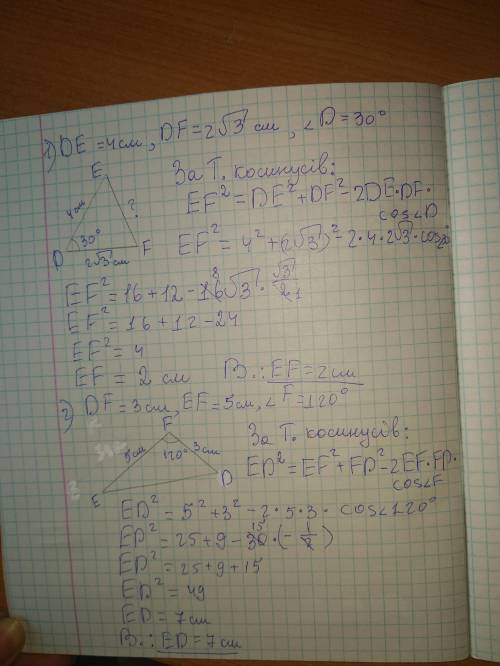 1) DE = 4см, DF = 2√3 см, ∠D = 30°
E
4см
?
30°
D
F
2√3 см
За Т. косинусів:
EF² = DE² + DF² - 2DE·DF·
cos∠D
EF² = 4² + (2√3)² - 2·4·2√3·cos30°
EF² = 16 + 12 - 16 8 √3 · √3/2 1
EF² = 16 + 12 - 24
EF² = 4
EF = 2 см
В.: EF = 2см
2) DF = 3см, EF = 5см, ∠F = 120°
F
5см
120°
3см
D
E
За Т. косинусів:
ED² = EF² + FD² - 2EF·FD·
cos∠F
ED² = 5² + 3² - 2·5·3· cos∠120°
ED² = 25 + 9 - 30 15 · (-1/2)
ED² = 25 + 9 + 15
ED² = 49
ED = 7см
В.: ED = 7см